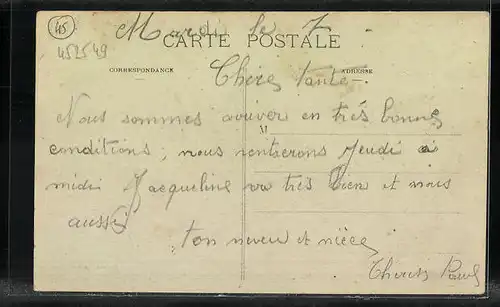 45
452549
Mardi le 7
CARTE POSTALE
CORRESPONDANCE
ADRESSE
Chère tante
Nous sommes arriver en très bonnes
M
conditions, nous rentrerons Jeudi à
midi Jacqueline va très bien et nous
aussi
ton neveu et nièce